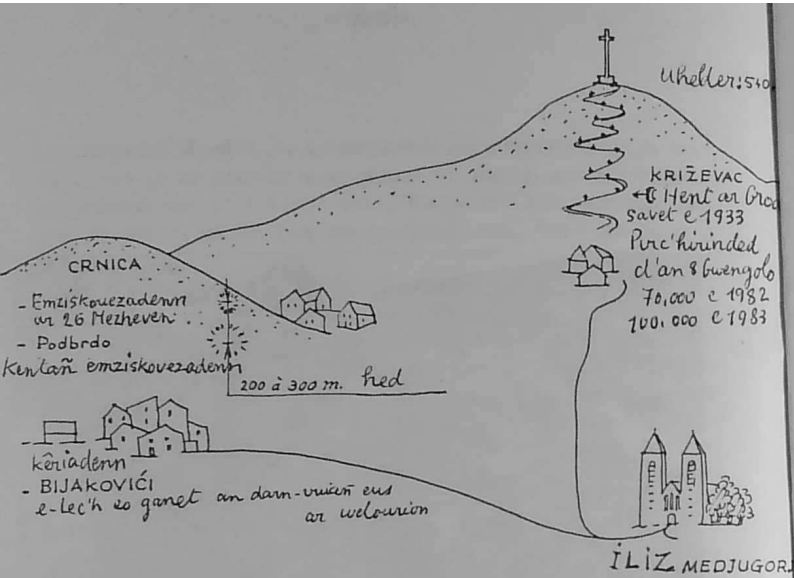 Uhelder: 540
KRIŽEVAC
Hent ar Groa
savet e 1933
Pirc'hirinded
d'an 8 Gwengolo
70,000 e 1982
100.000 e 1983
CRNICA
- Emziskouezadenn
ar 26 Mezheven
- Podbrdo
Kentañ emziskouezadenn
200 à 300 m. hed
kêriadenn
- BIJAKOVIĆI
e-lec'h eo ganet an darn-vuiañ eus
ar welourion
ILIZ MEDJUGORJ